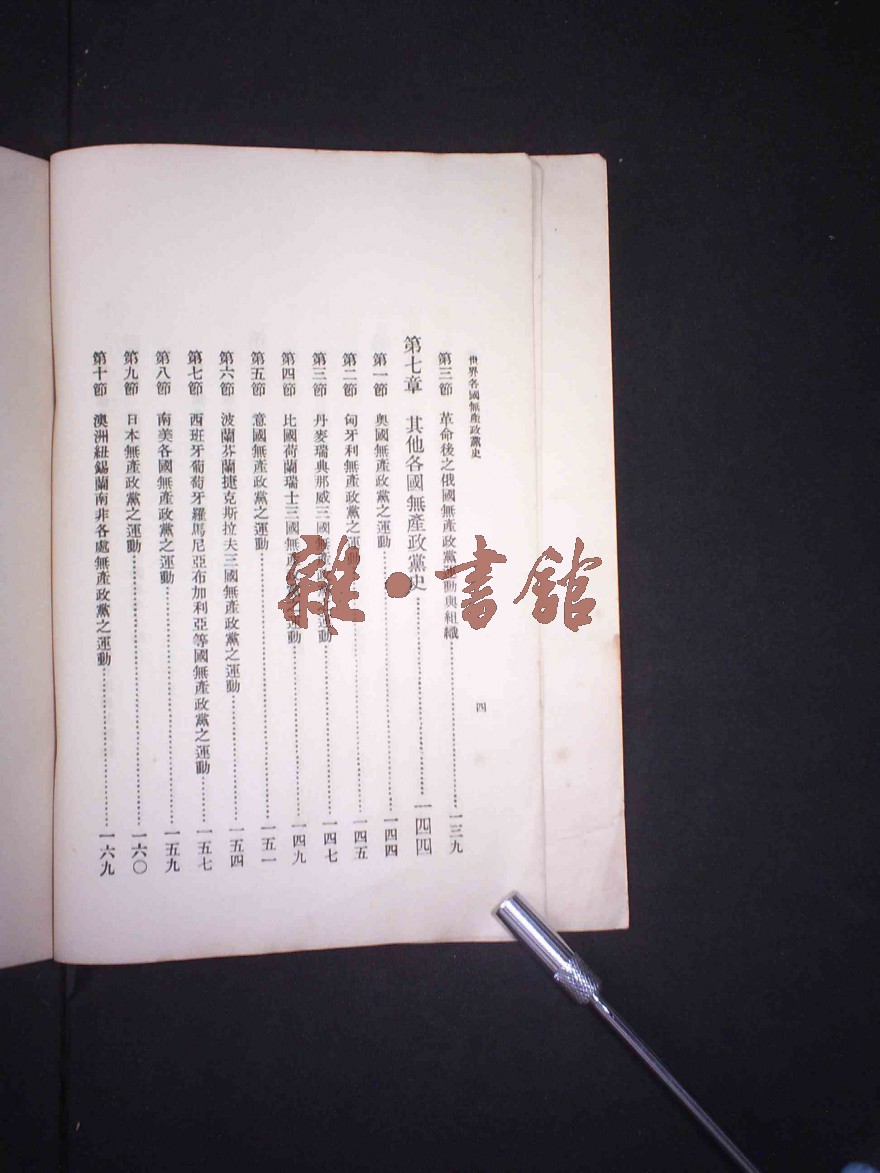 世界各國無產政黨史
四
第三節 革命後之俄國無產政黨運動與組織…………一三九
第七章 其他各國無產政黨史…………一四四
第一節 奧國無產政黨之運動…………一四四
第二節 匈牙利無產政黨之運動…………一四五
第三節 丹麥瑞典那威三國無產政黨之運動…………一四七
第四節 比國荷蘭瑞士三國無產政黨之運動…………一四九
第五節 意國無產政黨之運動…………一五一
第六節 波蘭芬蘭捷克斯拉夫三國無產政黨之運動…………一五四
第七節 西班牙葡萄牙羅馬尼亞布加利亞等國無產政黨之運動…………一五七
第八節 南美各國無產政黨之運動…………一五九
第九節 日本無產政黨之運動…………一六〇
第十節 澳洲紐錫蘭南非各處無產政黨之運動…………一六九
雜·書館